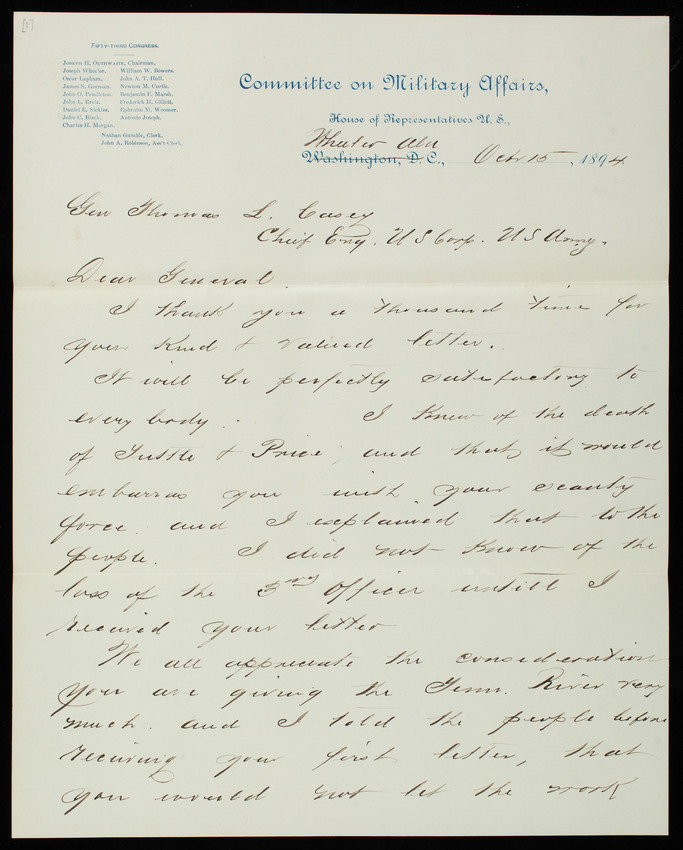 [1]
Fifty-third Congress.
Joseph H. Outhwaite, Chairman.
Joseph Wheeler. William W. Bowers.
Oscar Lapham. John A. T. Hull.
James S. Gorman. Newton M. Curtis.
John O. Pendleton. Benjamin F. Marsh.
John L. Bretz. Frederick H. Gillett.
Daniel E. Sickles. Ephraim M. Woomer.
John C. Black. Antonio Joseph.
Charles H. Morgan.
Nathan Gumble, Clerk.
John A. Robinson, Ass't Clerk.
Committee on Military Affairs,
House of Representatives U. S.,
Wheeler Ala
Washington, D. C., Octr 15, 1894
Gen Thomas L. Casey
Chief Eng. U S Corp. U S Army.
Dear General.
I thank you a thousand time for
your kind & valued letter.
It will be perfectly satisfactory to
every body. I knew of the death
of Tuttle & Price and that it would
embarras you with your scanty
force. and I explained that to the
people. I did not know of the
loss of the 3rd Officer untill I
received your letter
We all appreciate the consideration
you are giving the Tenn. River very
much. and I told the people before
receiving your first letter, that
you would not let the work